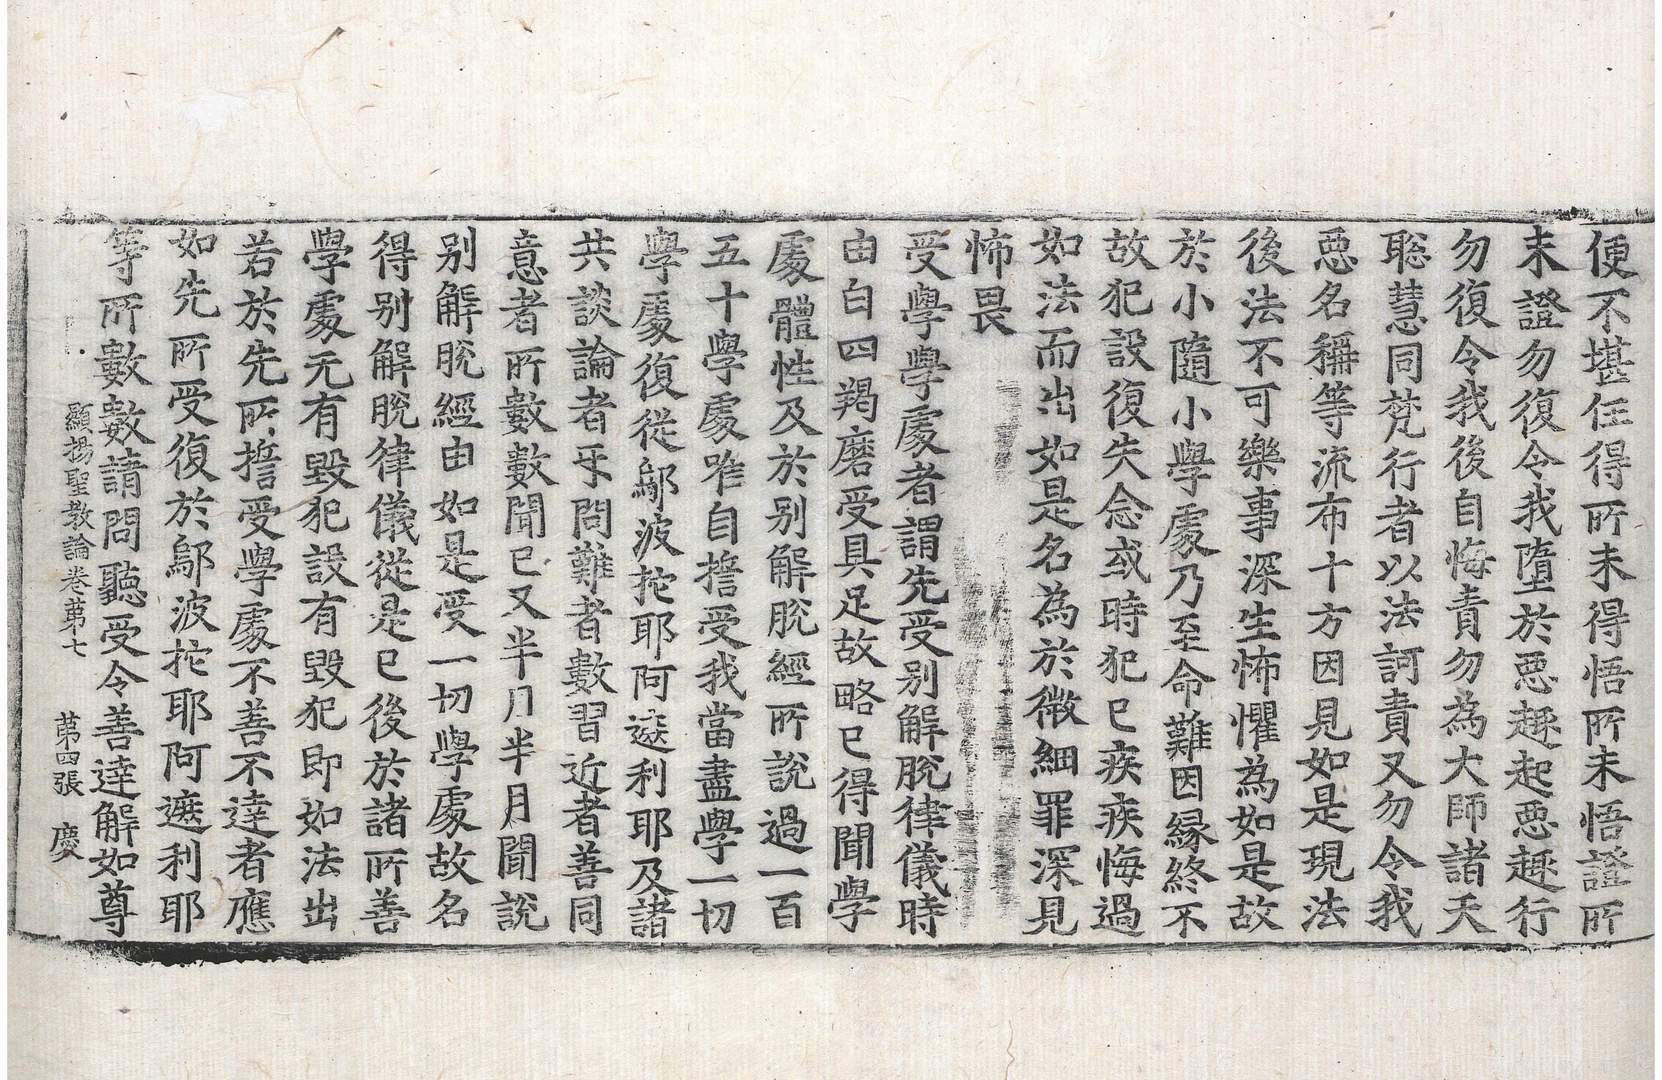 便不堪任得所未得悟所未悟證所
未證勿復令我墮於惡趣起惡趣行
勿復令我後自悔責勿為大師諸天
聡慧同梵行者以法訶責又勿令我
惡名稱等流布十方因見如是現法
後法不可樂事深生怖懼為如是故
於小隨小學處乃至命難因縁終不
故犯設復失念或時犯已疾疾悔過
如法而出如是名為於微細罪深見
怖畏
受學學處者謂先受别解脫律儀時
由白四羯磨受具足故略已得聞學
處體性及於别解脫經所說過一百
五十學處唯自誓受我當盡學一切
學處復從鄔波拕耶阿遮利耶及諸
共談論者乐問難者數習近者善同
意者所數數聞已又半月半月聞說
别解脫經由如是受一切學處故名
得别解脫律儀從是已後於諸所善
學處无有毀犯設有毀犯即如法出
若於先所誓受學處不善不達者應
如先所受復於鄔波拕耶阿遮利耶
等所數數請問聽受令善達解如尊
顯揚聖教論卷第七　第四張　慶